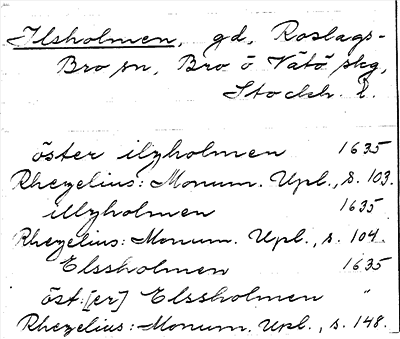 Ilsholmen, gd, Roslags-
Bro sn, Bro o Vätö skg,
Stockh. l.
öster ilzholmen 1635
Rhezelius: Monum. Upl., s. 103.
illzholmen 1635
Rhezelius: Monum. Upl., s. 104.
Elssholmen 1635
öst:[er] Elssholmen "
Rhezelius: Monum. Upl., s. 148.